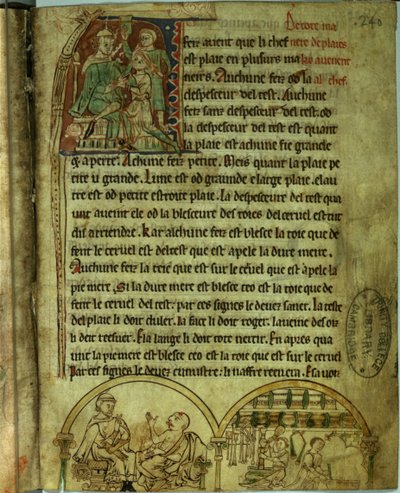 240
De tote ma
feiz avient que li chef nere de plaies
est plaie en plusurs ma ki avienent
neirs. Auchune feiz od la al chef.
despesceur del test. Auchune
feiz sanz despesceur del test. od
la despesceur del test est quant
la plaie est achune fie grande
& aperte. Achune feiz petite. Meis quant la plaie pe
tite u grande. Lune est od graunde e large plaie. elau
tre est od petite estroite plaie. la despesceur del test qua
unt avient ele od la blesceure des toies del cervel est mut
a Kar alchune feiz est blesce la toie que de
fent le cervel del test que est apele la dure mere.
Auchune feiz la teie que est sur le cervel que est apele la
pie mere. Si la dure mere est blesce ceo est la toie que de
fent le cervel del test. par ces signes le devez saver. La teste
del plaie li doit doler. la face li doit roger. la
li doit E la lange li doit tote nercir. En apres qua
unt la pie mere est blesce ceo est la toie que est sur le cervel
Par ces signes le devez cunuistre: li naffre E sa voiz
TRINITY COLLEGE
LIBRARY
CAMBRIDGE